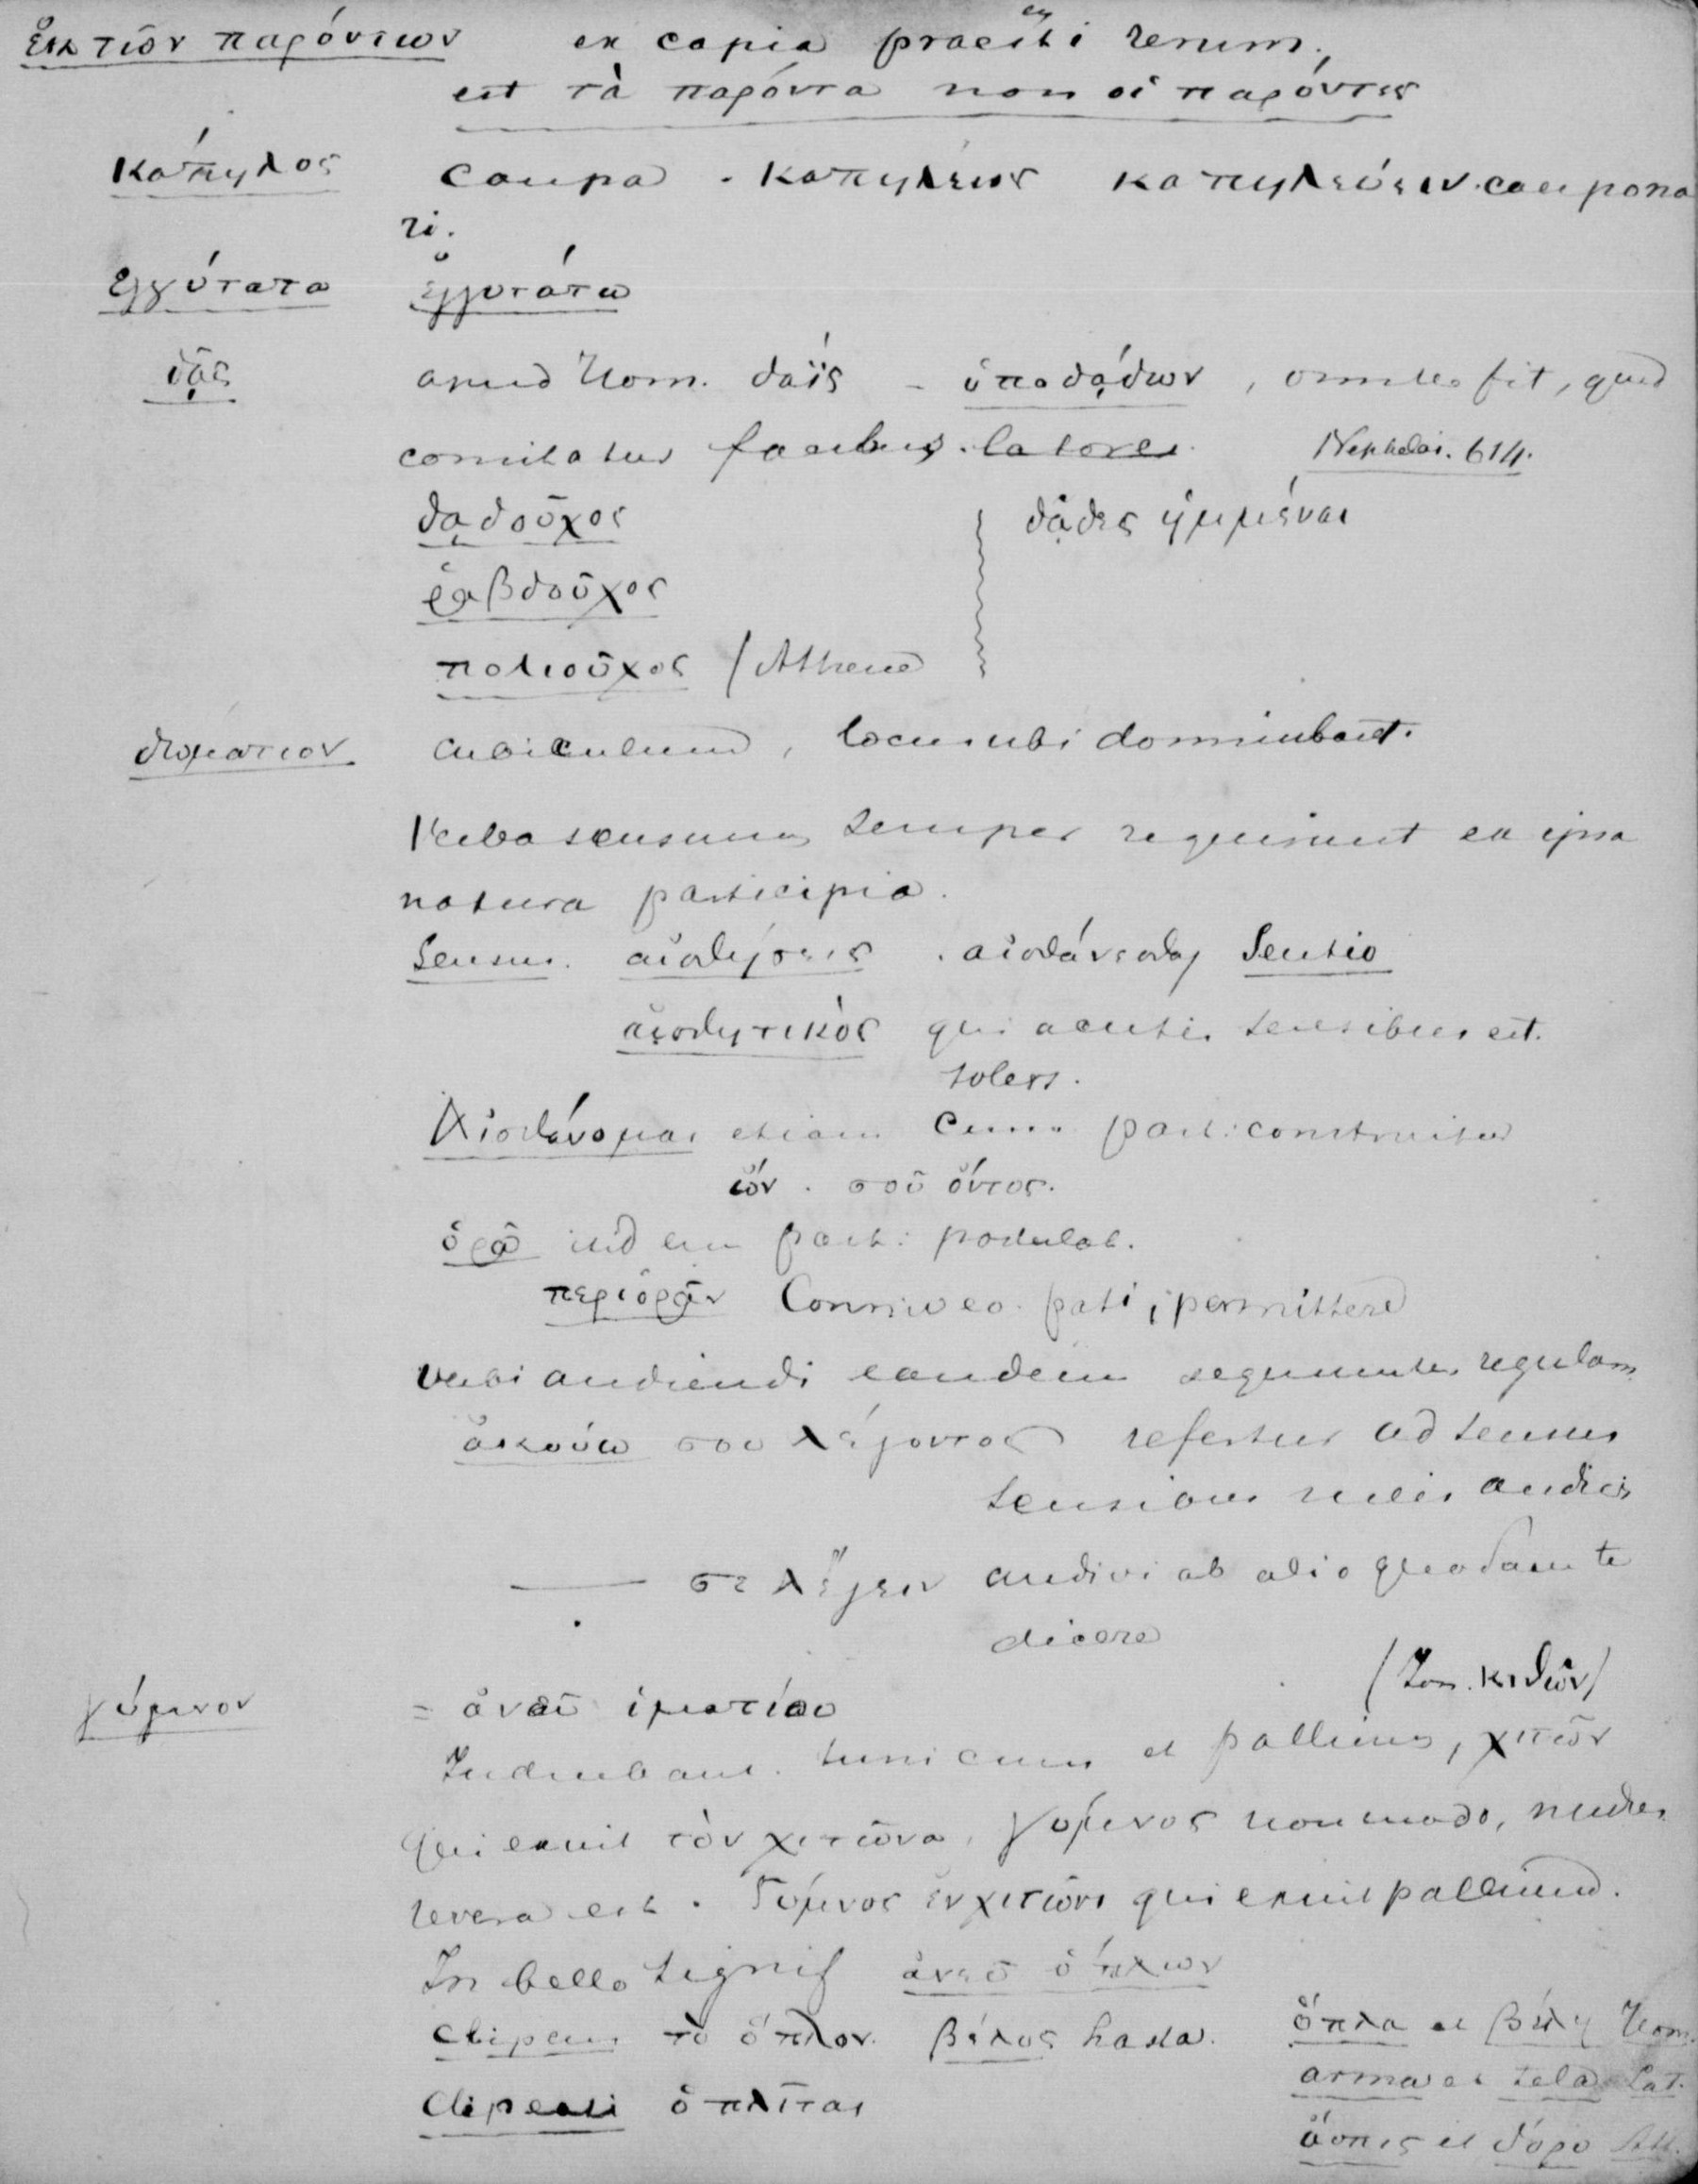 ἐκ τῶν παρόντων ex copia praesti rerum,
est τὰ παρόντα non οἱ παρόντες
Κάπηλος Caupo . καπηλεῖος καπηλεύειν . caupona
ri.
ἐγγύτατα ἐγγυτάτω
δᾷς apud Hom. δαΐς – ὑπο δᾴδων , fit, quod
comitatus facibus . latores. Nephelai. 614.
δᾳδοῦχος δᾷδες ἡμμέναι
ῥαβδοῦχος
πολιοῦχος / Athene
δωμάτιον cubiculum , locus ubi dormiebant.
Verba sensuum semper requirunt ex ipsa
natura participia.
Sensus. αἰσθήσεις . αἰσθάνεσθαι Sentio
αἰσθητικὸς qui acutis sensibus est.
solers.
Αἰσθάνομαι etiam cum part: construitur
ὤν . σοῦ ὄντος.
ὁρῶ part: postulat.
περιορᾶν Conniveo. pati , permittere
verbi audiendi eandem sequuntur regulam
ἀκούω σου λέγοντος refertur ad sensus
sensibus meis audivi
— σε λέγειν audivi ab alio quodam te
dicere
(Ion. κιθών)
γύμνον = ἄνευ ἱματίου
Induebant tunicam et pallium, χιτών
qui exuit τὸν χιτῶνα, γύμνος non modo, nudus
revera est . Γύμνος ἐν χιτῶνι qui exuit pallium.
In bello signif ἄνευ ὅπλων
clipeus τὸ ὅπλον. βέλος hasta. ὅπλα et βέλη Hom.
arma et tela Lat.
clipeati ὁπλῖται
ἄσπις et δόρυ Att.